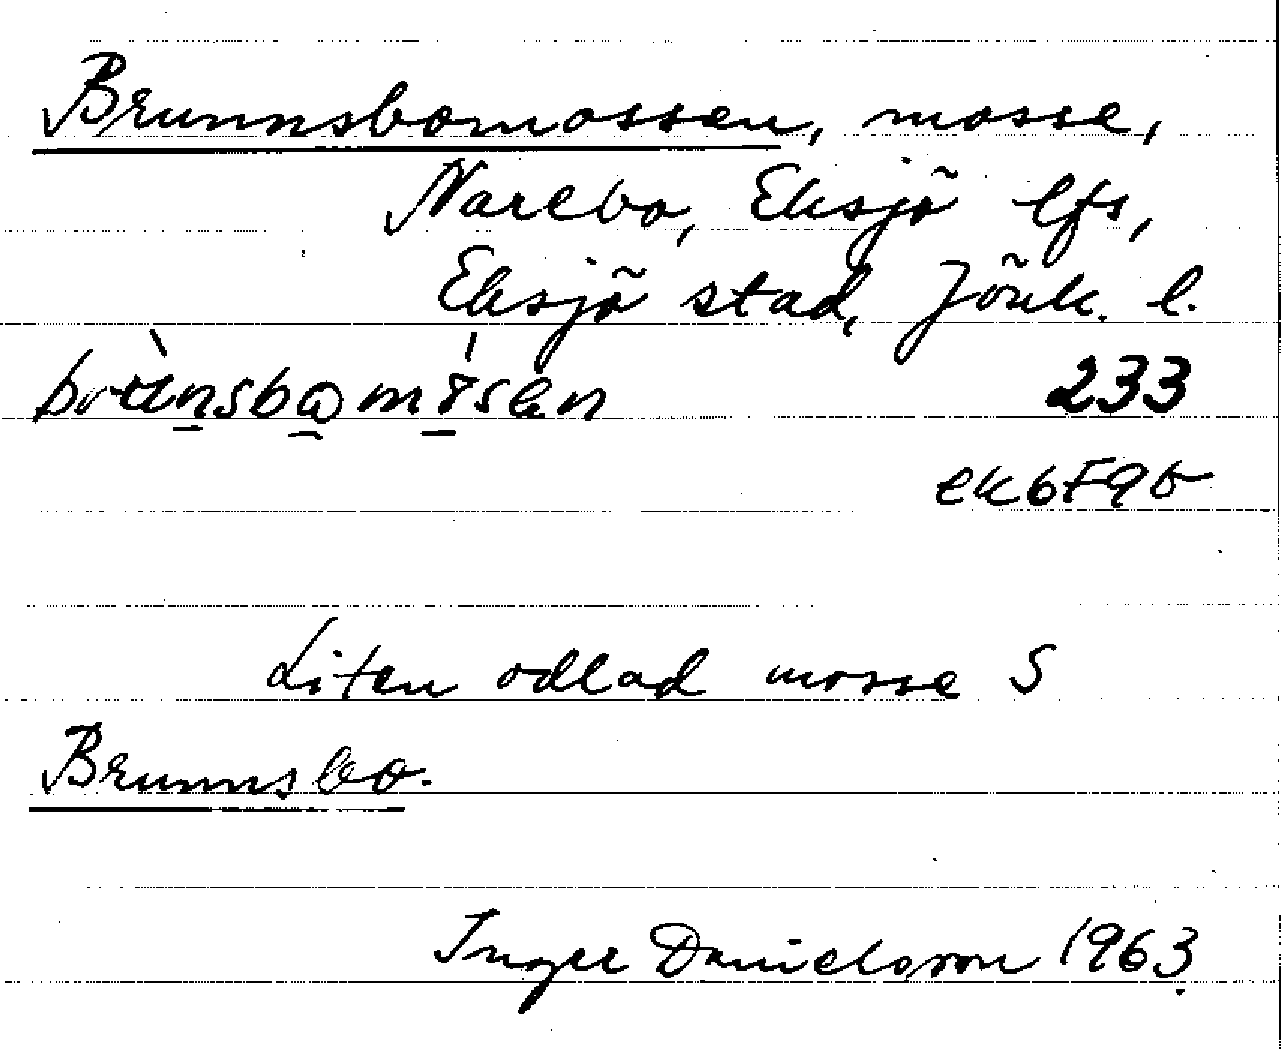 Brunnsbomossen, mosse,
Narebo, Eksjö lfs,
Eksjö stad, Jönk. l.
233
ek6F9b
Liten odlad mosse S
Brunnsbo.
Inger Danielsson 1963